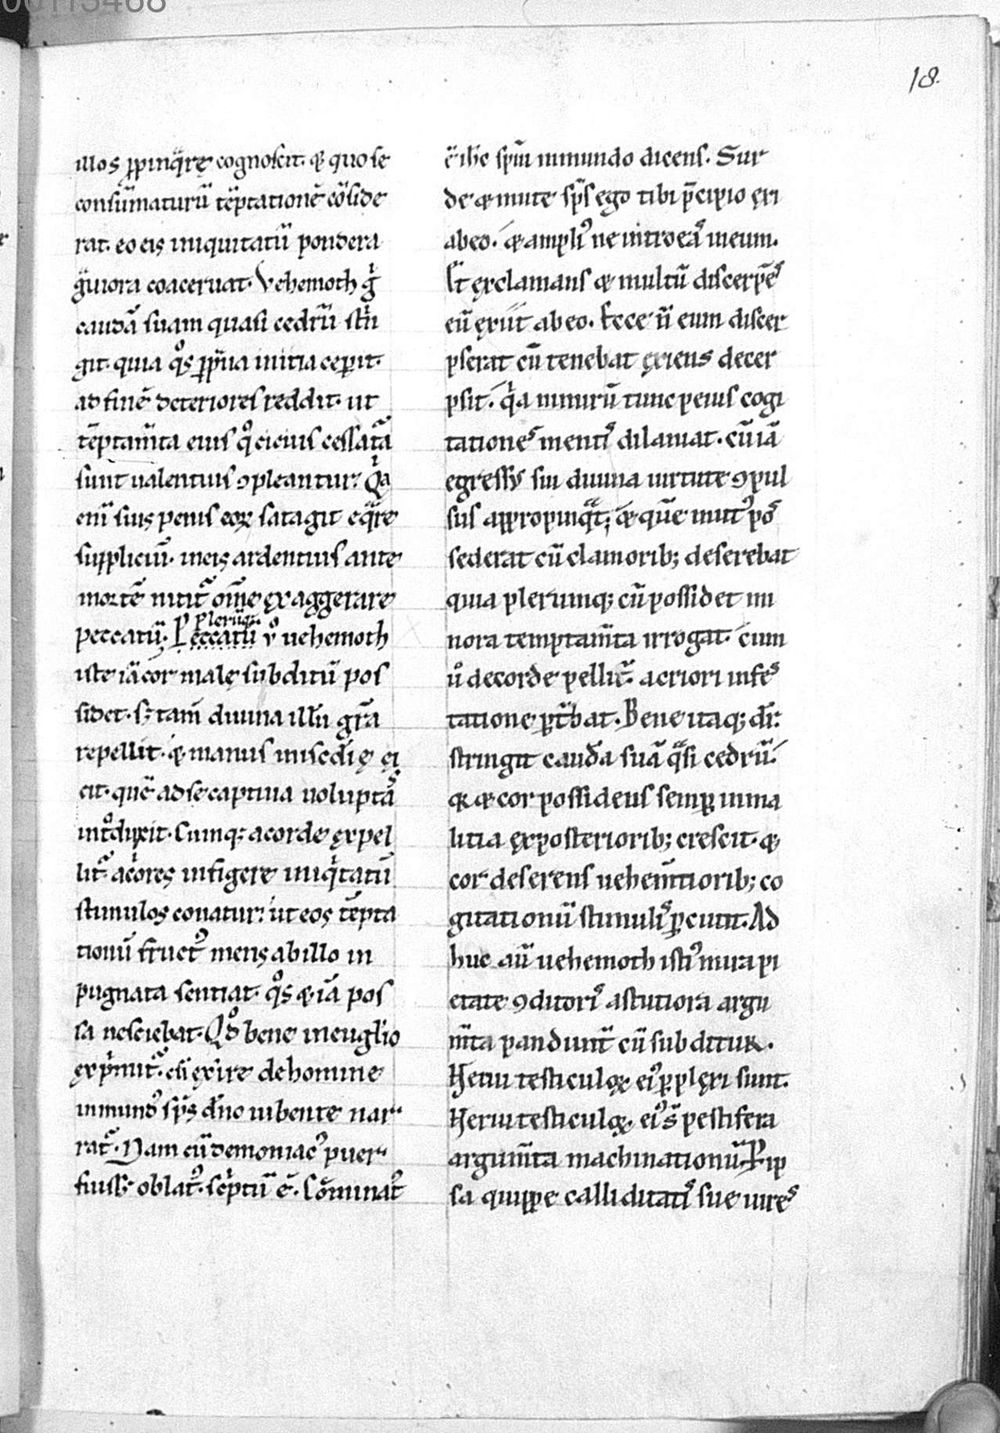 00115468
18.
illos ꝓpinq̃rę cognoscit. & quo se
consũmaturũ tẽptationẽ cõside
rat. eo eis iniquitatũ pondera
g̃uiora coaceruat. Vehemoth g̊
caudã suam quasi cedrũ st̊n
git. quia q̊s ꝑpr̃ua initia cepit.
ad finẽ deteriores reddit. ut
tẽptam̃ta eius q̊ cicius cessatᷓa
sunt ualentius ꝯpleantur. Qͥa
eni᷑ suis penis eoꝝ satagit eq̃re
suppliciũ. in eis ardentius ante
mortẽ nitit᷑ om̃e exaggerare
peccatũ. Plerũq;
Peccatũ ů uehemoth
iste iã cor malę subditũ pos
sidet. s; tam̃ diuina illũ gr̃a
repellit. & manus mis̃cdię ei
cit. quẽ ad se captiua uoluptã
int̊duxit. Cumq; a corde ęxpel
lit᷑. ac̊ores infigere iniq̊tatũ
stimulos conatur. ut eos tẽpta
tionũ fluct᷒ mens ab illo in
pugnata sentiat. q̊s & iã pos
sa nesciebat. Qd̊ bene in euglio
ęxp̊mit᷑. cũ ęxire de homine
inmund᷒ sp̃s dño iubente nar
rat᷑. Nam cũ demoniac᷒ puer
fiuss; oblat᷒. sc̊ptũ ẽ. Cõminat᷒
ẽ ihc sp̃m inmundo dicens. Sur
de & mute sp̃s ego tibi p̃cipio exi
ab eo. & ampli᷒ ne introeas in eum.
Et ęxclamans & multũ discerpẽs
eũ ęxiit ab eo. Ecce ñ eum discer
pserat cũ tenebat ęxiens decer
psit. q̊a nimirũ tunc peius cogi
tationes mentis dilaniat. cũ iã
egressui sui diuina uirtute ꝯpul
sus appropinq̃t. & quẽ mut᷒ pos
sederat cũ clamorib; deserebat
quia plerumq; cũ possidet mi
nora temptam̃ta irrogat. cum
ů de corde pellit᷑ acriori infes
tatione ꝑt᷑bat. Bene itaq; dr̃:
stringit caudã suã q̃si cedrũ.
q̃ & cor possidens semꝑ in ma
litia ęx posteriorib; crescit. &
cor deserens uehem̃tiorib; co
gitationũ stimulis ꝑcutit. Ad
huc aũ uehemoth isti᷒ mira pi
etate ꝯditoris astutiora argu
m̃ta pandunt᷑ cũ subditur.
Nerui testiculoꝝ ei᷒ ꝑplęxi sunt.
Nerui testiculoꝝ ei᷒ s̃ pestifera
argum̃ta machinationũ. Pip
sa quippe calliditatis sue uires